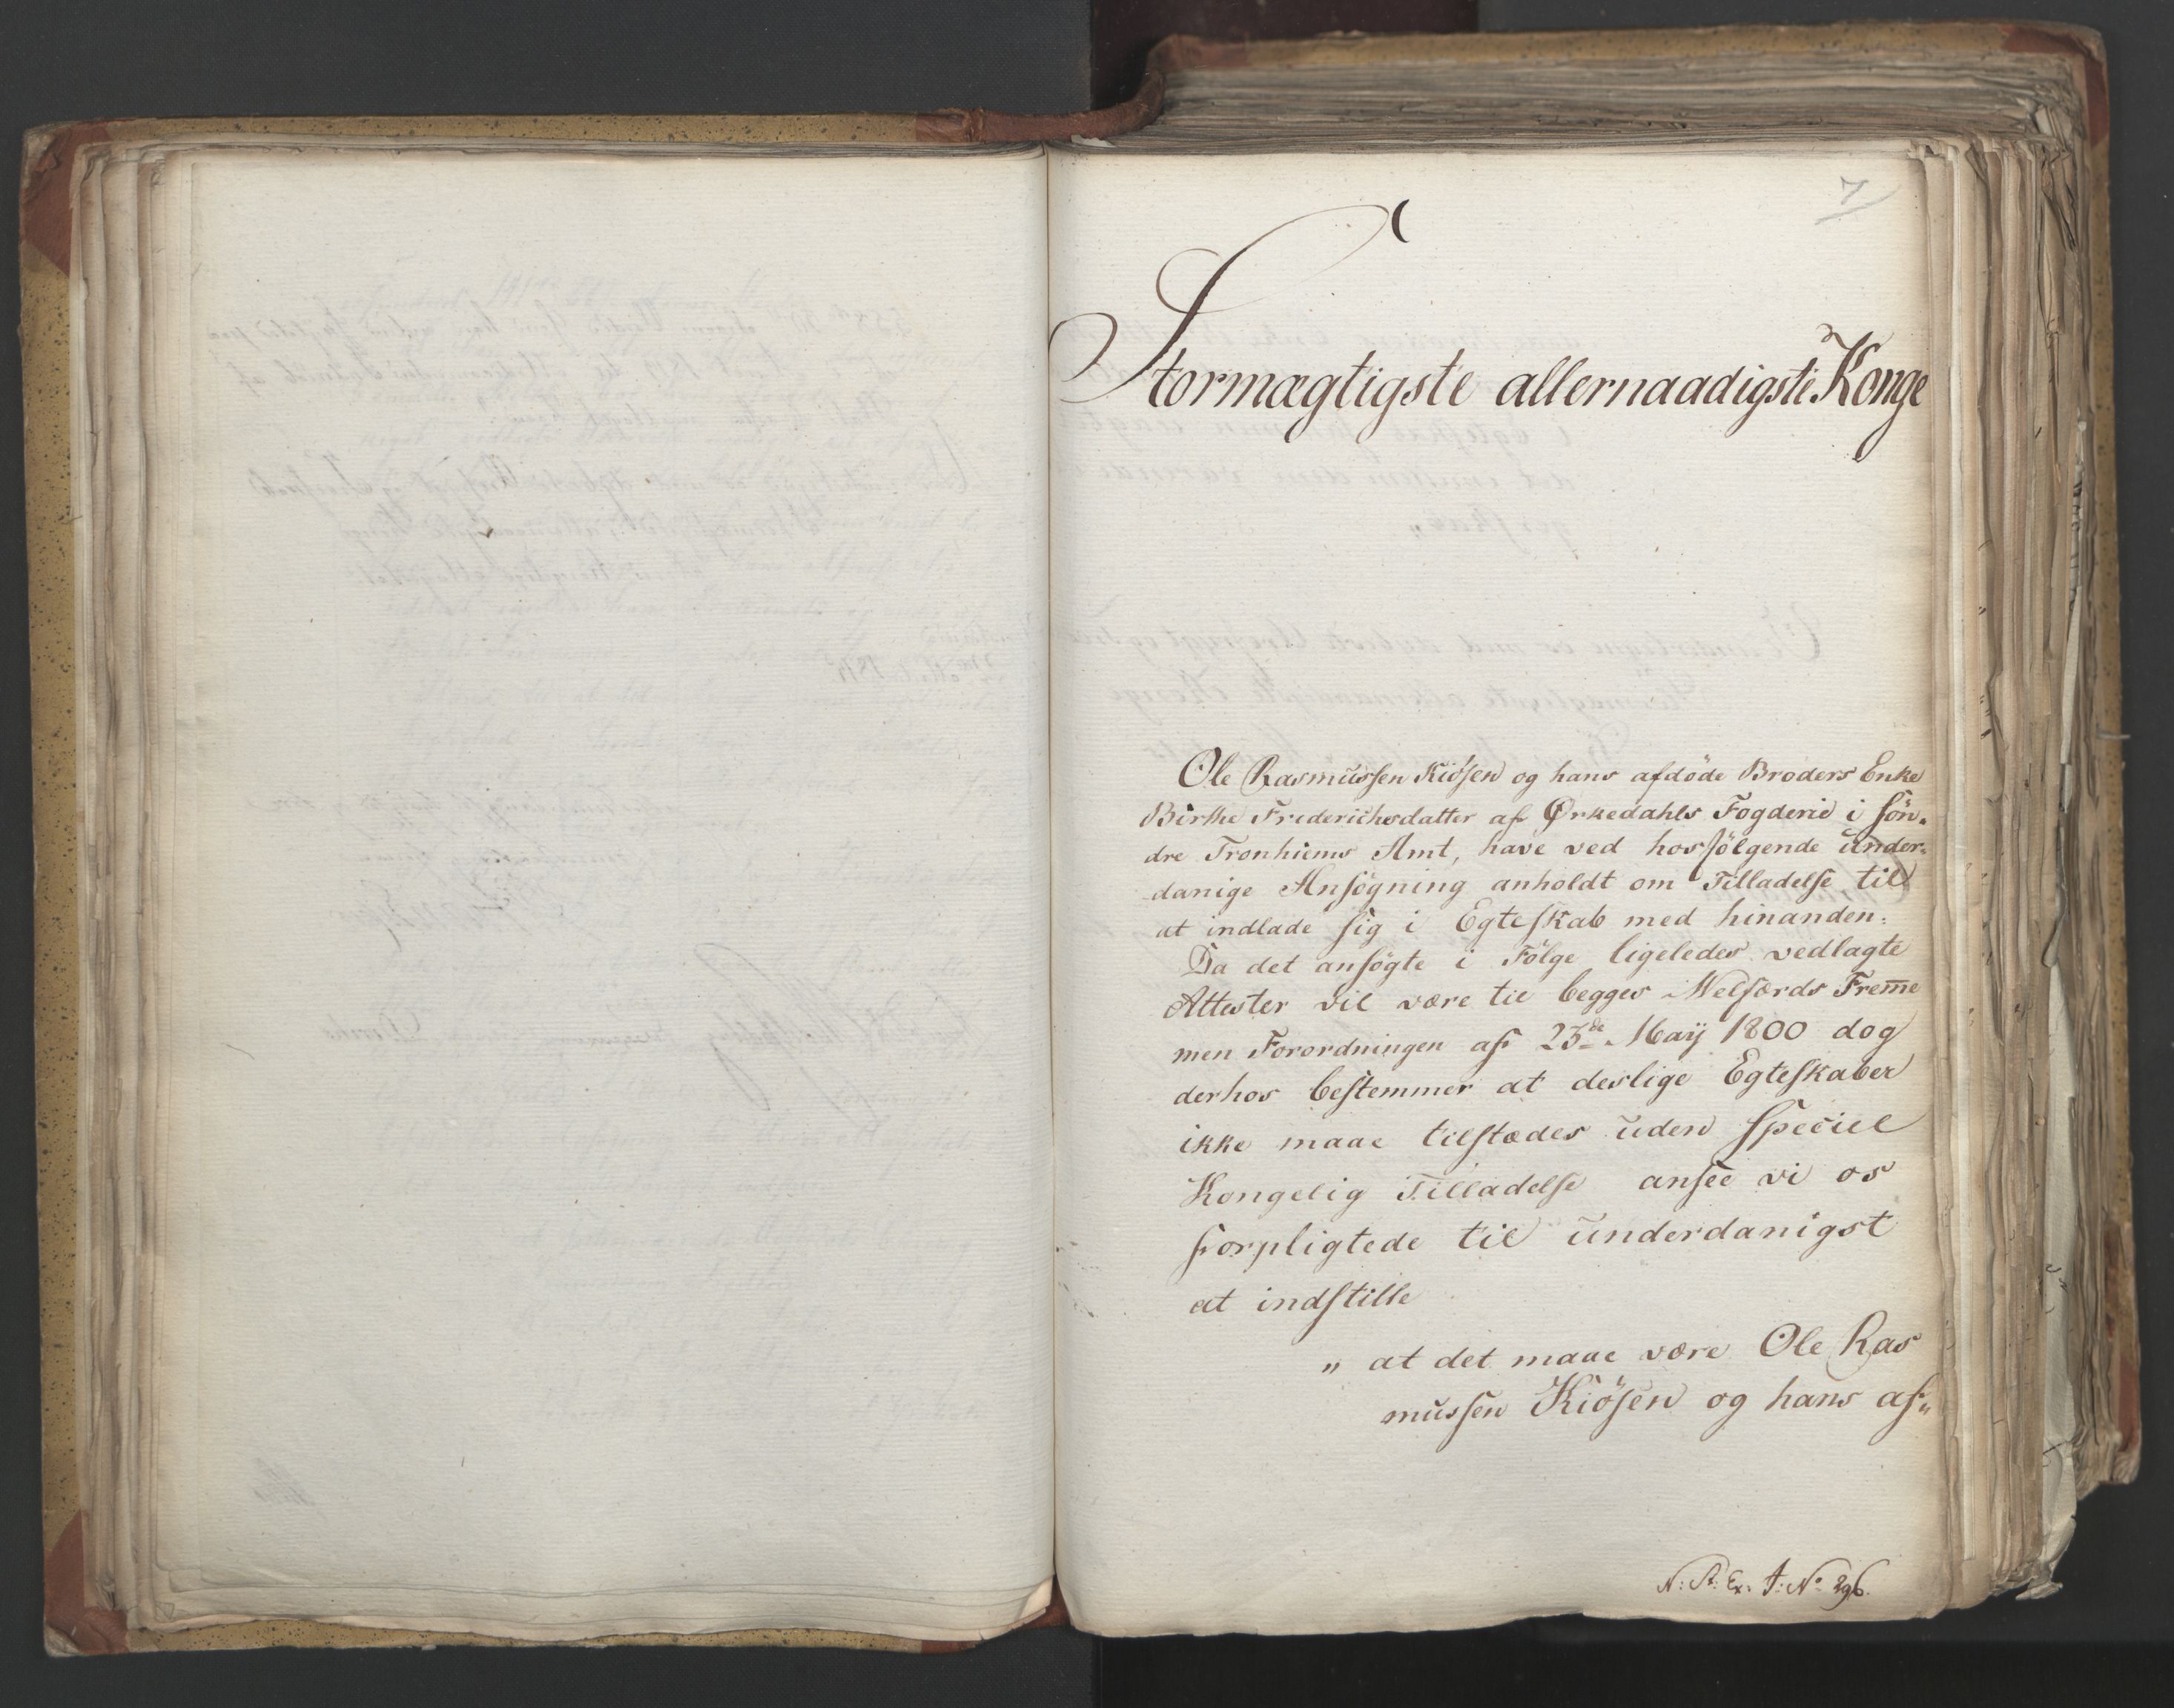 7
Stormægtigste allernaadigste Konge
Ole Rasmussen Kiösen og hans afdöde Broders Enke
Birthe Friderichsdatter af Ørkedahls Fogderie i Sön„
dre Tronhiems Amt, have ved hosfölgende under„
danige Ansögning anholdt om Tilladelse til
at indlade sig i Egteskab med hinanden:
Da det ansögte i Fölge ligeledes vedlagte
Attester vil være til begges Velfærds Frem̅e
men Forordningen af 23de Maÿ 1800 dog
derhos bestemmer at deslige Egteskaber
ikke maae tilstædes uden Speciel
Kongelig Tilladelse ansee vi os
forpligtede til underdanigst
at indstille
„ at det maae være Ole Ras
mussen Kiösen og hans af„
N: R: Ex: A: No 296.